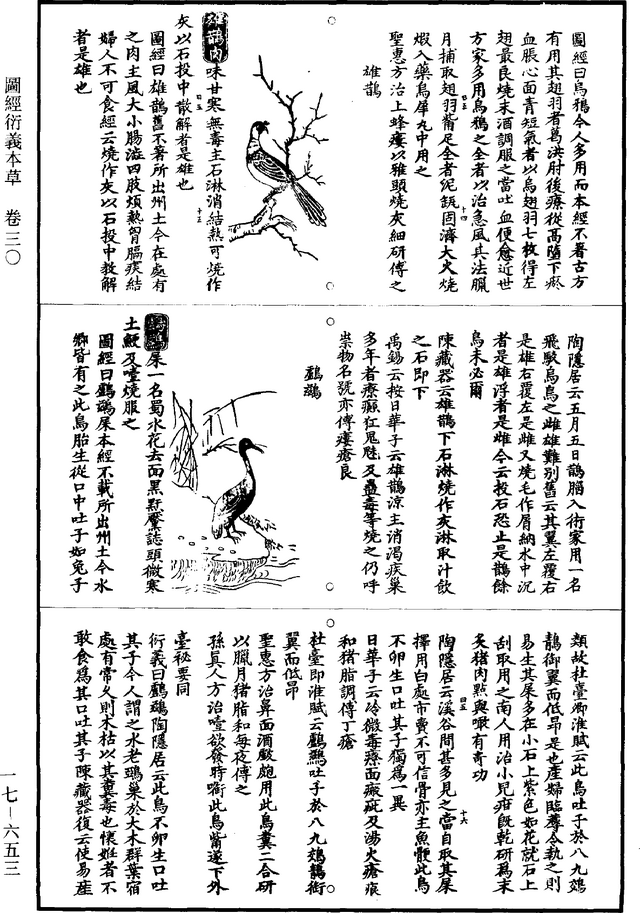 圖經衍義本草　卷三〇
圖經曰烏鴉今人多用而本經不著古方
有用其翅羽者葛洪肘後療從高墮下瘀
血脹心面青短氣者以烏翅羽七枚得左
翅最良燒末酒調服之當吐血便愈近世
方家多用烏鴉之全者以治急風其法臘
月捕取翅羽觜足全者泥缶固濟大火燒
煆入藥烏犀丸中用之
聖惠方治土蜂瘻以鴉頭燒灰細研傅之
雄鵲
雄鵲肉味甘寒無毒主石淋消結熱可燒作
灰以石投中散解者是雄也
圖經曰雄鵲舊不著所出州土今在處有
之肉主風大小腸澁四肢煩熱胷膈痰結
婦人不可食經云燒作灰以石投中散解
者是雄也
陶隱居云五月五日鵲腦入術家用一名
飛駮烏鳥之雌雄難別舊云其翼左覆右
是雄右覆左是雌又燒毛作屑納水中沉
者是雄浮者是雌今云投石恐止是鵲餘
鳥未必爾
陳藏器云雄鵲下石淋燒作灰淋取汁飲
之石即下
禹錫云按日華子云雄鵲涼主消渴疾巢
多年者療癲狂鬼魅及蠱毒等燒之仍呼
祟物名號亦傅瘻瘡良
鸕鷀
鸕鷀屎一名蜀水花去面黑䵟黶誌頭微寒
土鯁及噎燒服之
圖經曰鸕鷀屎本經不載所出州土今水
鄉皆有之此鳥胎生從口中吐子如兔子
類故杜臺卿淮賦云此鳥吐子於八九鵁
鶄御翼而低昂是也產婦臨蓐令執之則
易生其屎多在小石上紫色如花就石上
刮取用之南人用治小兒疳旣乾研爲末
炙猪肉點與噉有奇功
陶隱居云溪谷間甚多見之當自取其屎
擇用白處市賣不可信骨亦主魚骾此鳥
不卵生口吐其子獨爲一異
日華子云冷微毒療面瘢疵及湯火瘡痕
和猪脂調傅丁瘡
杜臺卿淮賦云鸕鷀吐子於八九鵁鶄銜
翼而低昂
聖惠方治鼻面酒皶皰用此鳥糞二合研
以臘月猪脂和每夜傅之
孫眞人方治噎欲發時銜此鳥觜遂下外
臺祕要同
衍義曰鸕鷀陶隱居云此鳥不卵生口吐
其子今人謂之水老鵶巢於大木群葉宿
處有常久則木枯以其糞毒也懷姙者不
敢食爲其口吐其子陳藏器復云使易產
一七－六五三